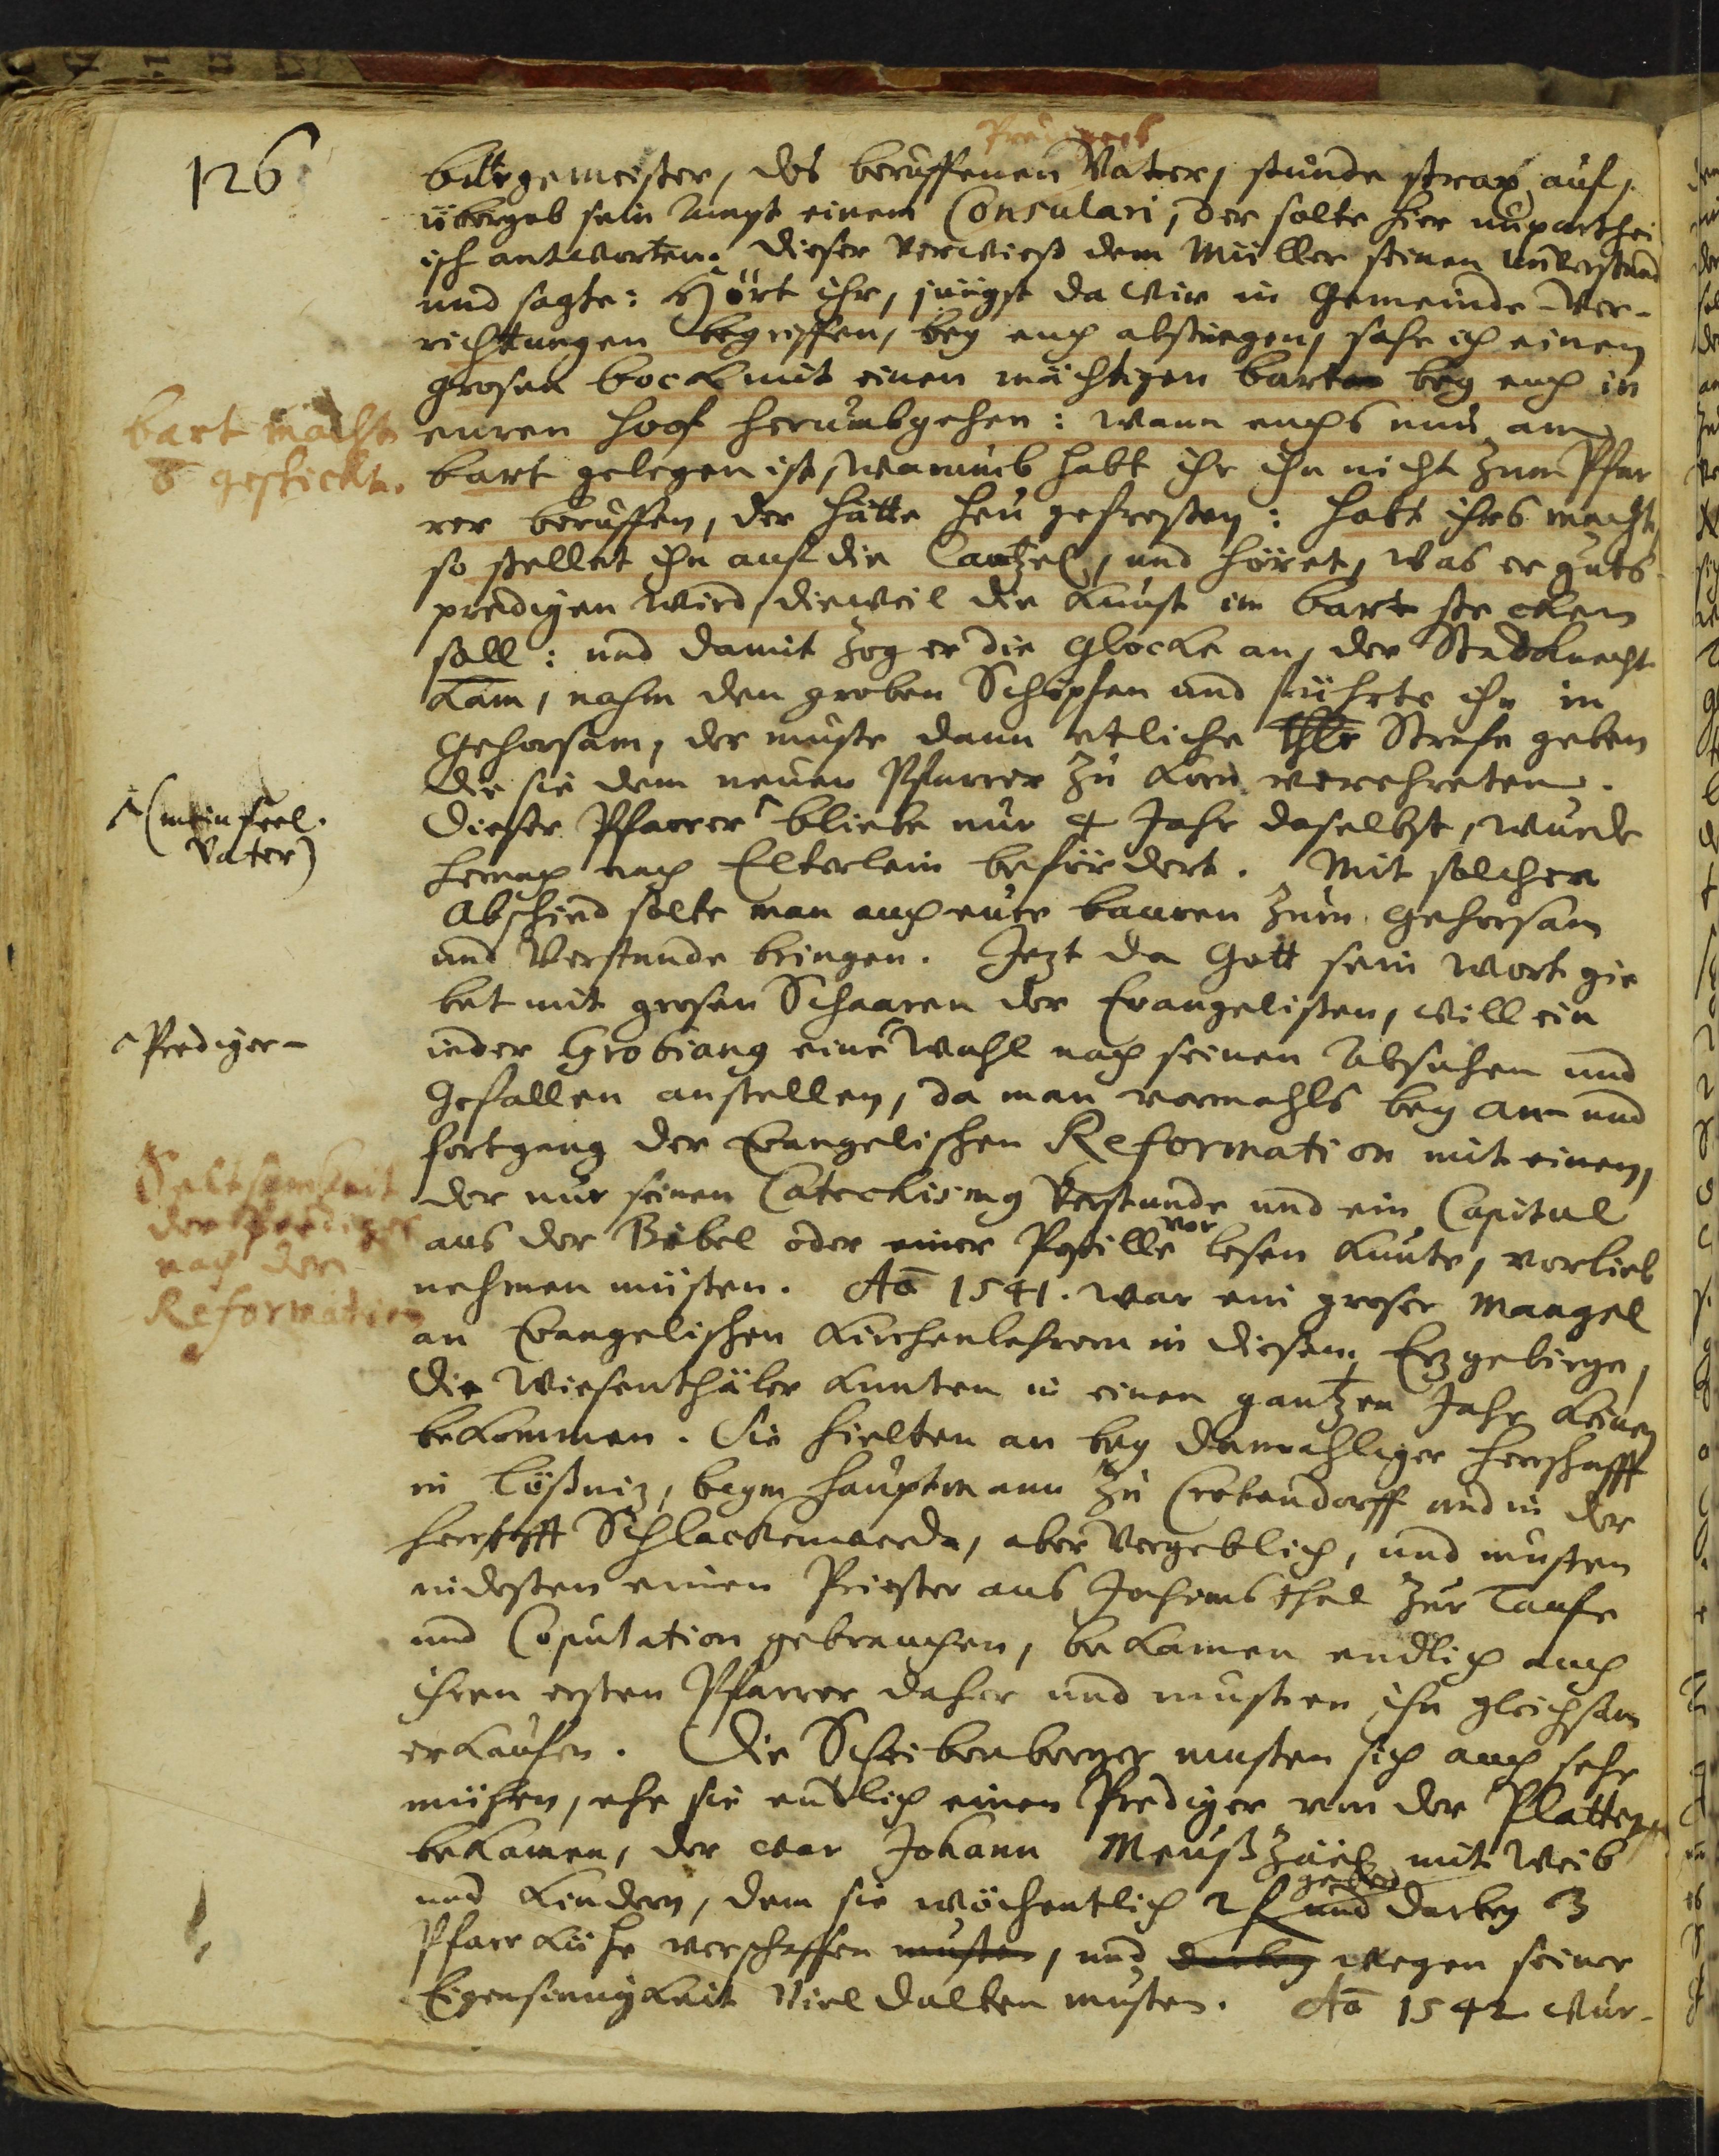 126
Predigers
bürgemeister, des beruffenen Vater, stunde strax auf,
übergab sein Ampt einem Consulari, der solte hier unparthei
isch antworten. Dieser verwieß dem Müller seinen unverstand
und sagte: Hört ihr, jüngst da wir in Gemeinde-Ver-
richtungen begriffen, bey euch abstiegen, sahe ich einen
grosen bock mit einen mächtigen bart bey euch in
euren Hoof herumbgehen: wann euchs nun am
bart gelegen ist, warumb habt ihr ihn nicht zum Pfar
rer beruffen, der hätte Heu gefreßen: habt ihrs macht,
so stellet ihn auf die Cantzel, und höret, was er guts
predigen wird, dieweil die Kunst im bart stecken
soll: und damit zog er die Glocke an, der Stadknecht
kam, nahm den groben Schöpsen und führte ihn in
Gehorsam, der muste dann etliche Thlr Strafe geben
die sie dem neuen Pfarrer zu Korn verehreten.
Dieser Pfarrer ^ bliebe nur 4 Jahr daselbst, wurde
hernach nach Elterlein befördert. Mit solcher
Abschied solte man auch eure bauren zum gehorsam
und Verstande bringen. Jezt da Gott sein Wort gie
bet mit grosen Schaaren der Evangelisten, will ein
ieder Grobiang eine ^ Wahl nach seinen Absehen und
Gefallen anstellen, da man vormahls bey an- und
fortgang der Evangelischen Reformation mit einem,
der nur seinen Catechismg verstunde und ein Capitul
aus der Bibel oder einer Postille vor lesen kunte, vorlieb
nehmen müsten. Aō 1541. war ein groser Mangel
an Evangelischen Kirchenlehrern in diesem Erzgebirge,
die Wiesenthäler kunten in einen gantzen Jahr keinen
bekommen. Sie hielten an bey damahliger Herrschafft
in Lößniz, beym Hauptmann zu Crotendorff und in der
Herrschafft Schlackenwerda, aber vergeblich, und musten
indeßen einen Priester aus Jochimsthal zur Taufe
und Coputation gebrauchen, bekamen endlich auch
ihren ersten Pfarrer daher und musten ihn gleichsam
erkaufen. Die Scheibenberger musten sich auch sehr
mühen, ehe sie endlich einen Prediger von der Platten
bekamen, der war Johann Meußzäch mit Weib
und Kindern, dem sie wöchentlich 2 f und darbey 3
Pfarr Kühe verschaffen musten, und darbey wegen seiner
Eigensinnigkeit viel dulten musten. Aō 1542 wur-
bart macht
gestickt.
^ (mein seel.
Vater)
^ Prediger-
Seltsamkeit
der Prediger
nach der
Reformation